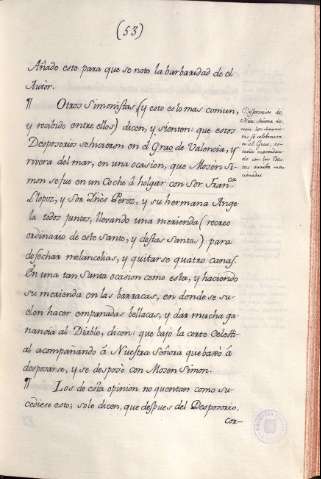 (53)
Añado esto para que se note la barbaridad de el
Autor.
¶ Otros Simonistas (y esto es lo mas comun,
y recibido entre ellos) dicen, y sienten: que estos
Desposorios se hicieron en el Grao de Valencia, y
rivera del mar, en una ocasion, que Mosén Si-
mon se fue en un Coche á holgar con Sor Fran.ca
Llopez, y Sra Inés Perez, y su hermana Ange-
la todos juntos, llevando una merienda (recreo
ordinario de este Santo, y destas Santas) para
desechar melancolias, y quitarse quatro canas.
En una tan Santa ocasion como esta, y haciendo
su merienda en las barracas, en donde se su-
elen hacer empanadas bellacas, y dar mucha ga-
nancia al Diablo, dicen: que bajó la corte Celesti-
al acompañando á Nuestra Señora que bajó á
desposarse, y se desposó con Mosen Simon.
¶ Los de esta opinion no quentan como su-
cediese esto; solo dicen, que despues del Desposorio,
Cor-
Desposorio de
Ntra Señora di-
cen los Simonis-
tas se celebraron
en el Grao,